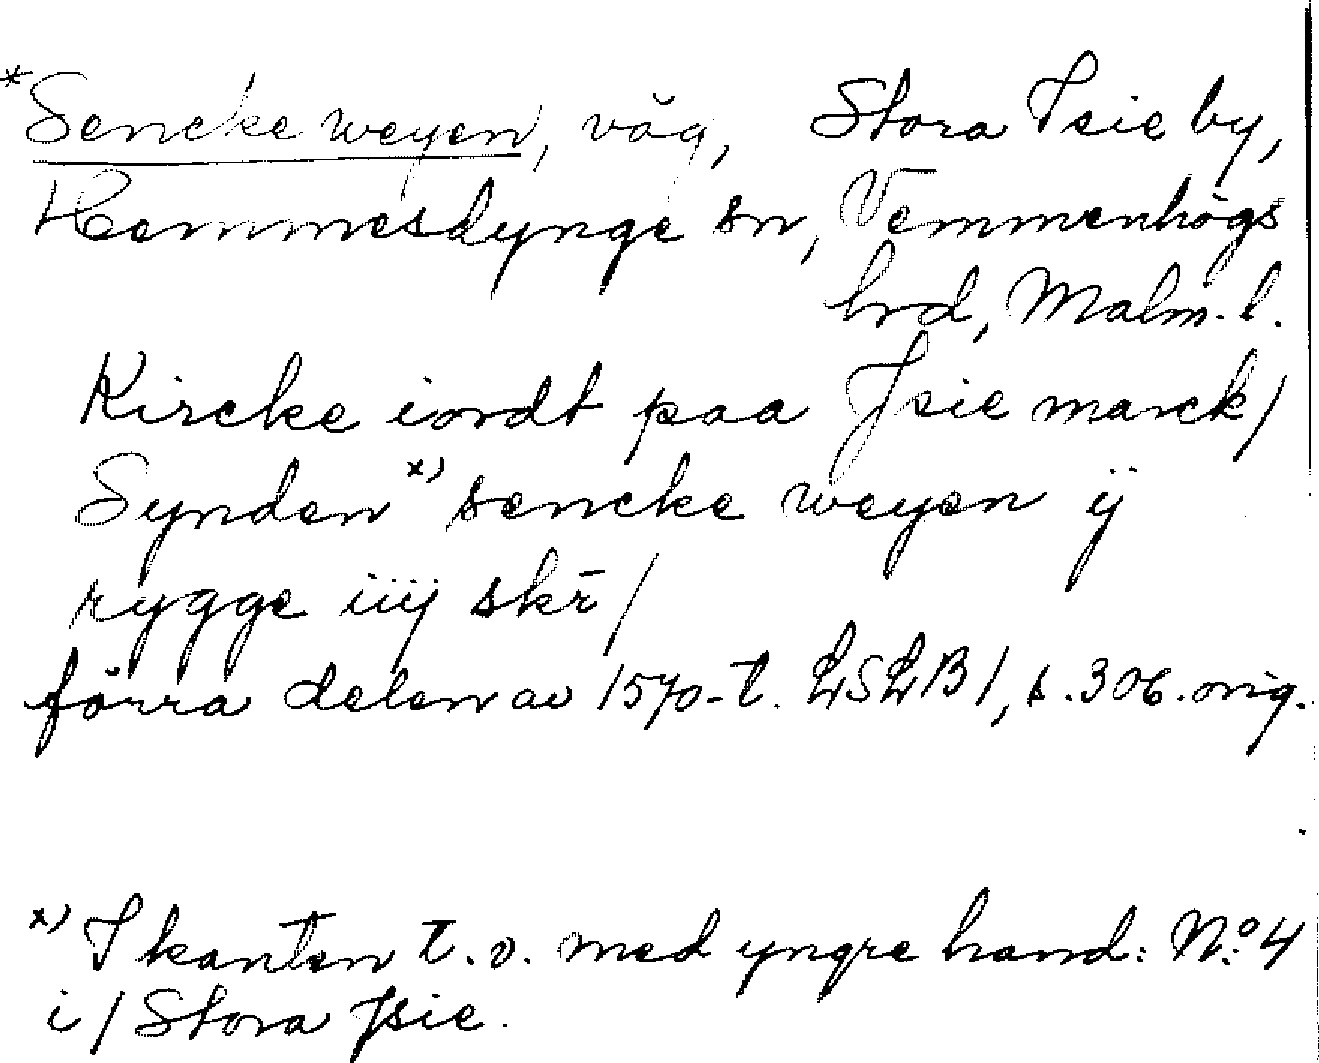 *Sencke weyen, väg, Stora Isie by,
Hemmesdynge sn, Vemmenhögs
hrd, Malm. l.
Kircke iordt paa Jsie marck/
Synden x) sencke weyen ij
rygge iiij skr̄/
förra delen av 1570-t. LSLB 1, s. 306. orig.
x) I kanten t. v. med yngre hand: N:o 4
i / Stora Jsie.